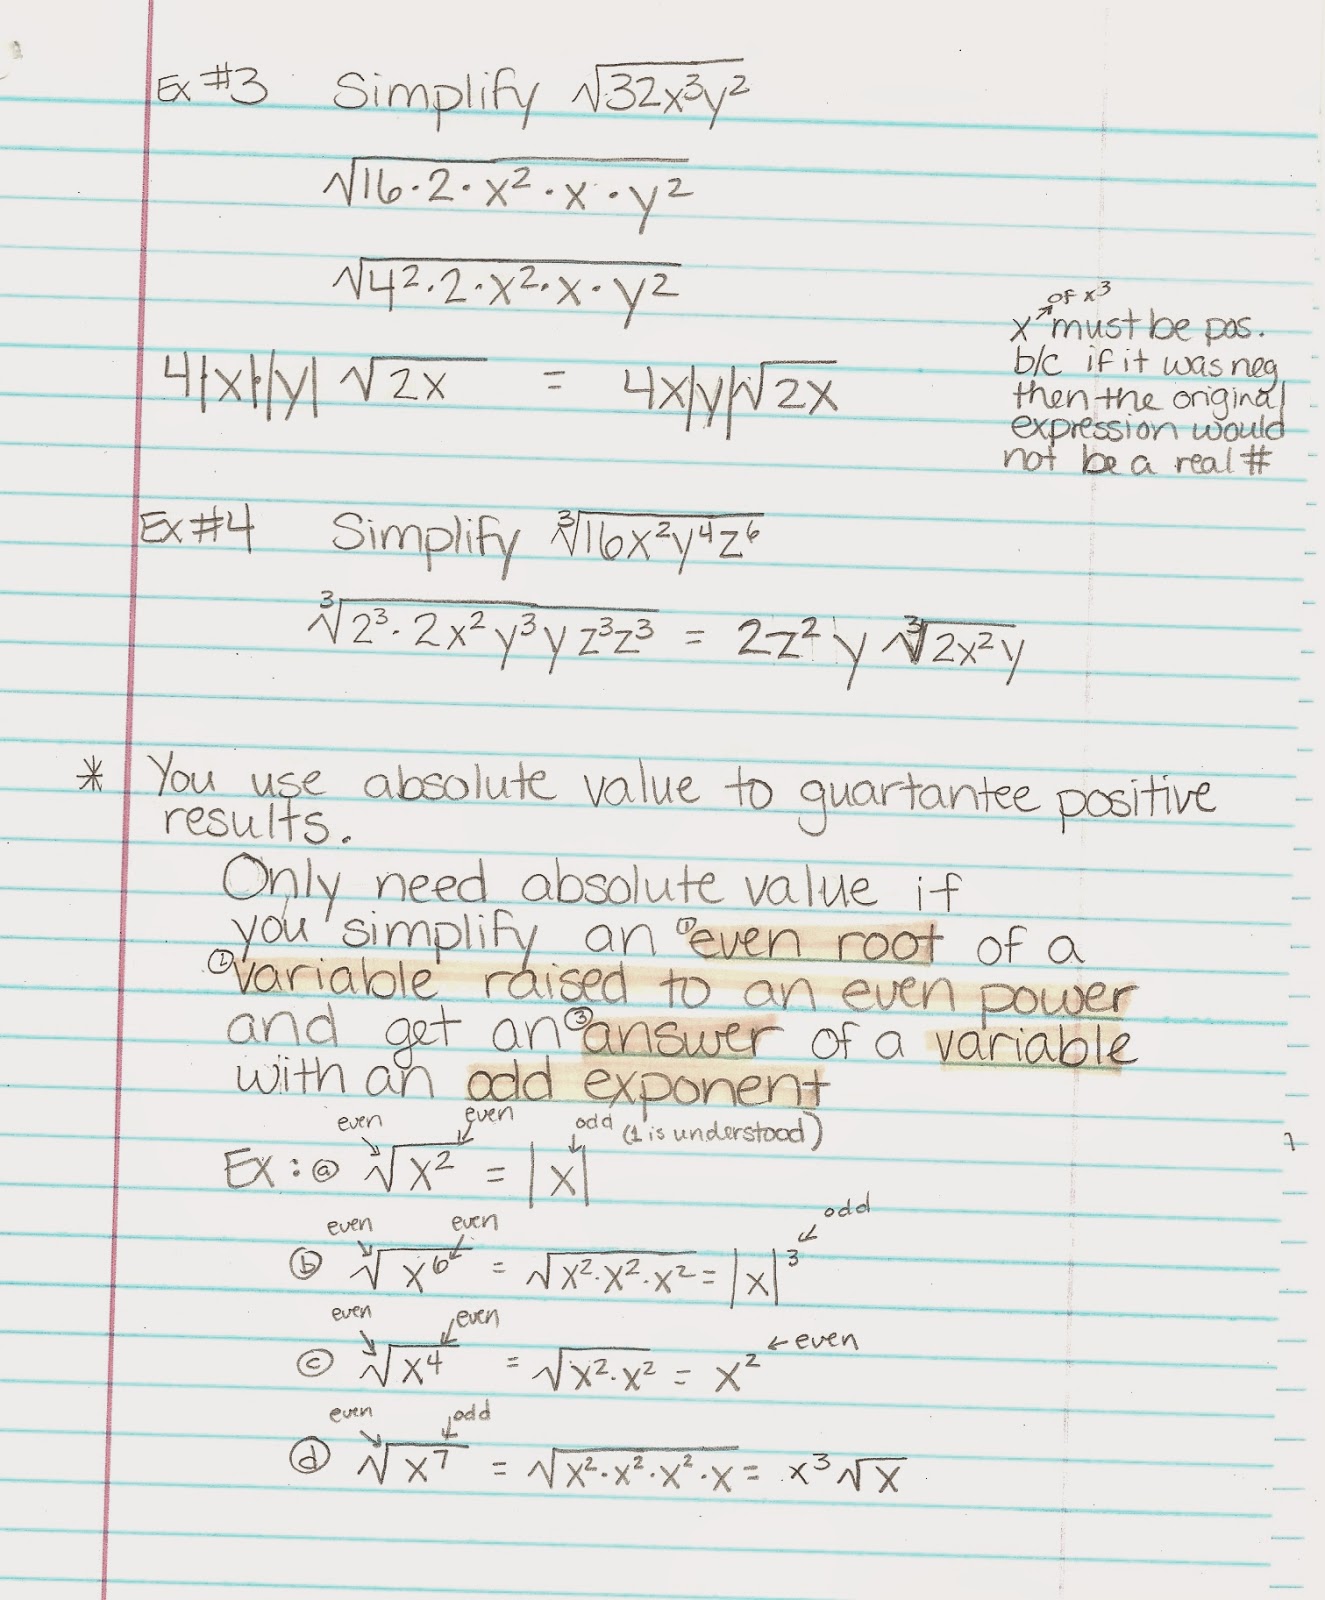 Ex #3 Simplify √32x³y²
√16·2·x²·x·y²
√4²·2·x²·x·y²
4|x|·|y| √2x = 4x|y|√2x
of x³
x must be pos.
b/c if it was neg
then the original
expression would
not be a real #
Ex #4 Simplify ∛16x²y⁴z⁶
∛2³·2x²y³yz³z³ = 2z²y ∛2x²y
* You use absolute value to guartantee positive
results.
Only need absolute value if
you simplify an ① even root of a
② variable raised to an even power
and get an ③ answer of a variable
with an odd exponent
even even odd (1 is understood)
Ex: ⓐ √x² = |x|
even even odd
ⓑ √x⁶ = √x²·x²·x² = |x|³
even even
ⓒ √x⁴ = √x²·x² = x² ← even
even odd
ⓓ √x⁷ = √x²·x²·x²·x = x³√x